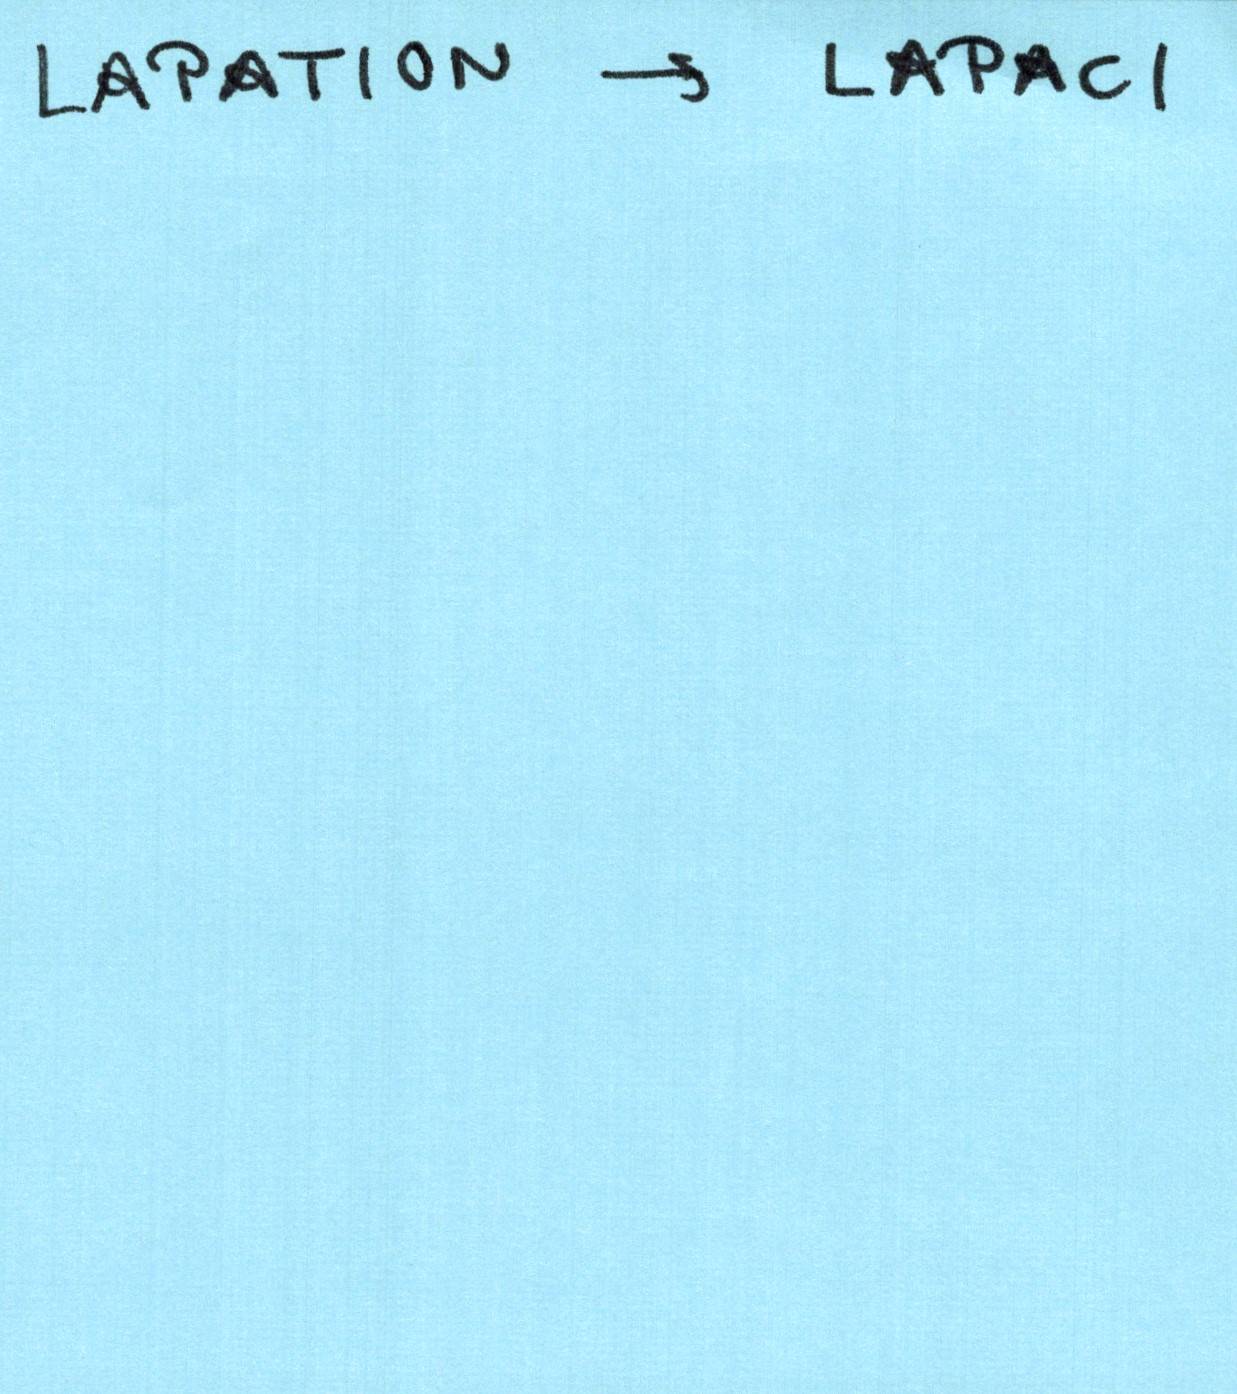 LAPATION → LAPACI